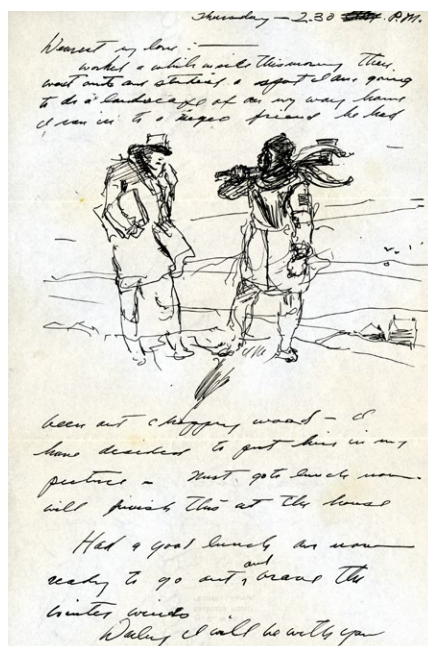 Thursday — 2.30 P.M.
Dearest my love: —
worked a while this morning then
went out and studied a spot I am going
to do a landscape of on my way home
I ran in to a negro friend he had
been out chopping wood — I
have decided to put him in my
picture — Must go to lunch now
will finish this at the house
Had a good lunch am now
ready to go out and brave the
winter winds
Darling I will be with you